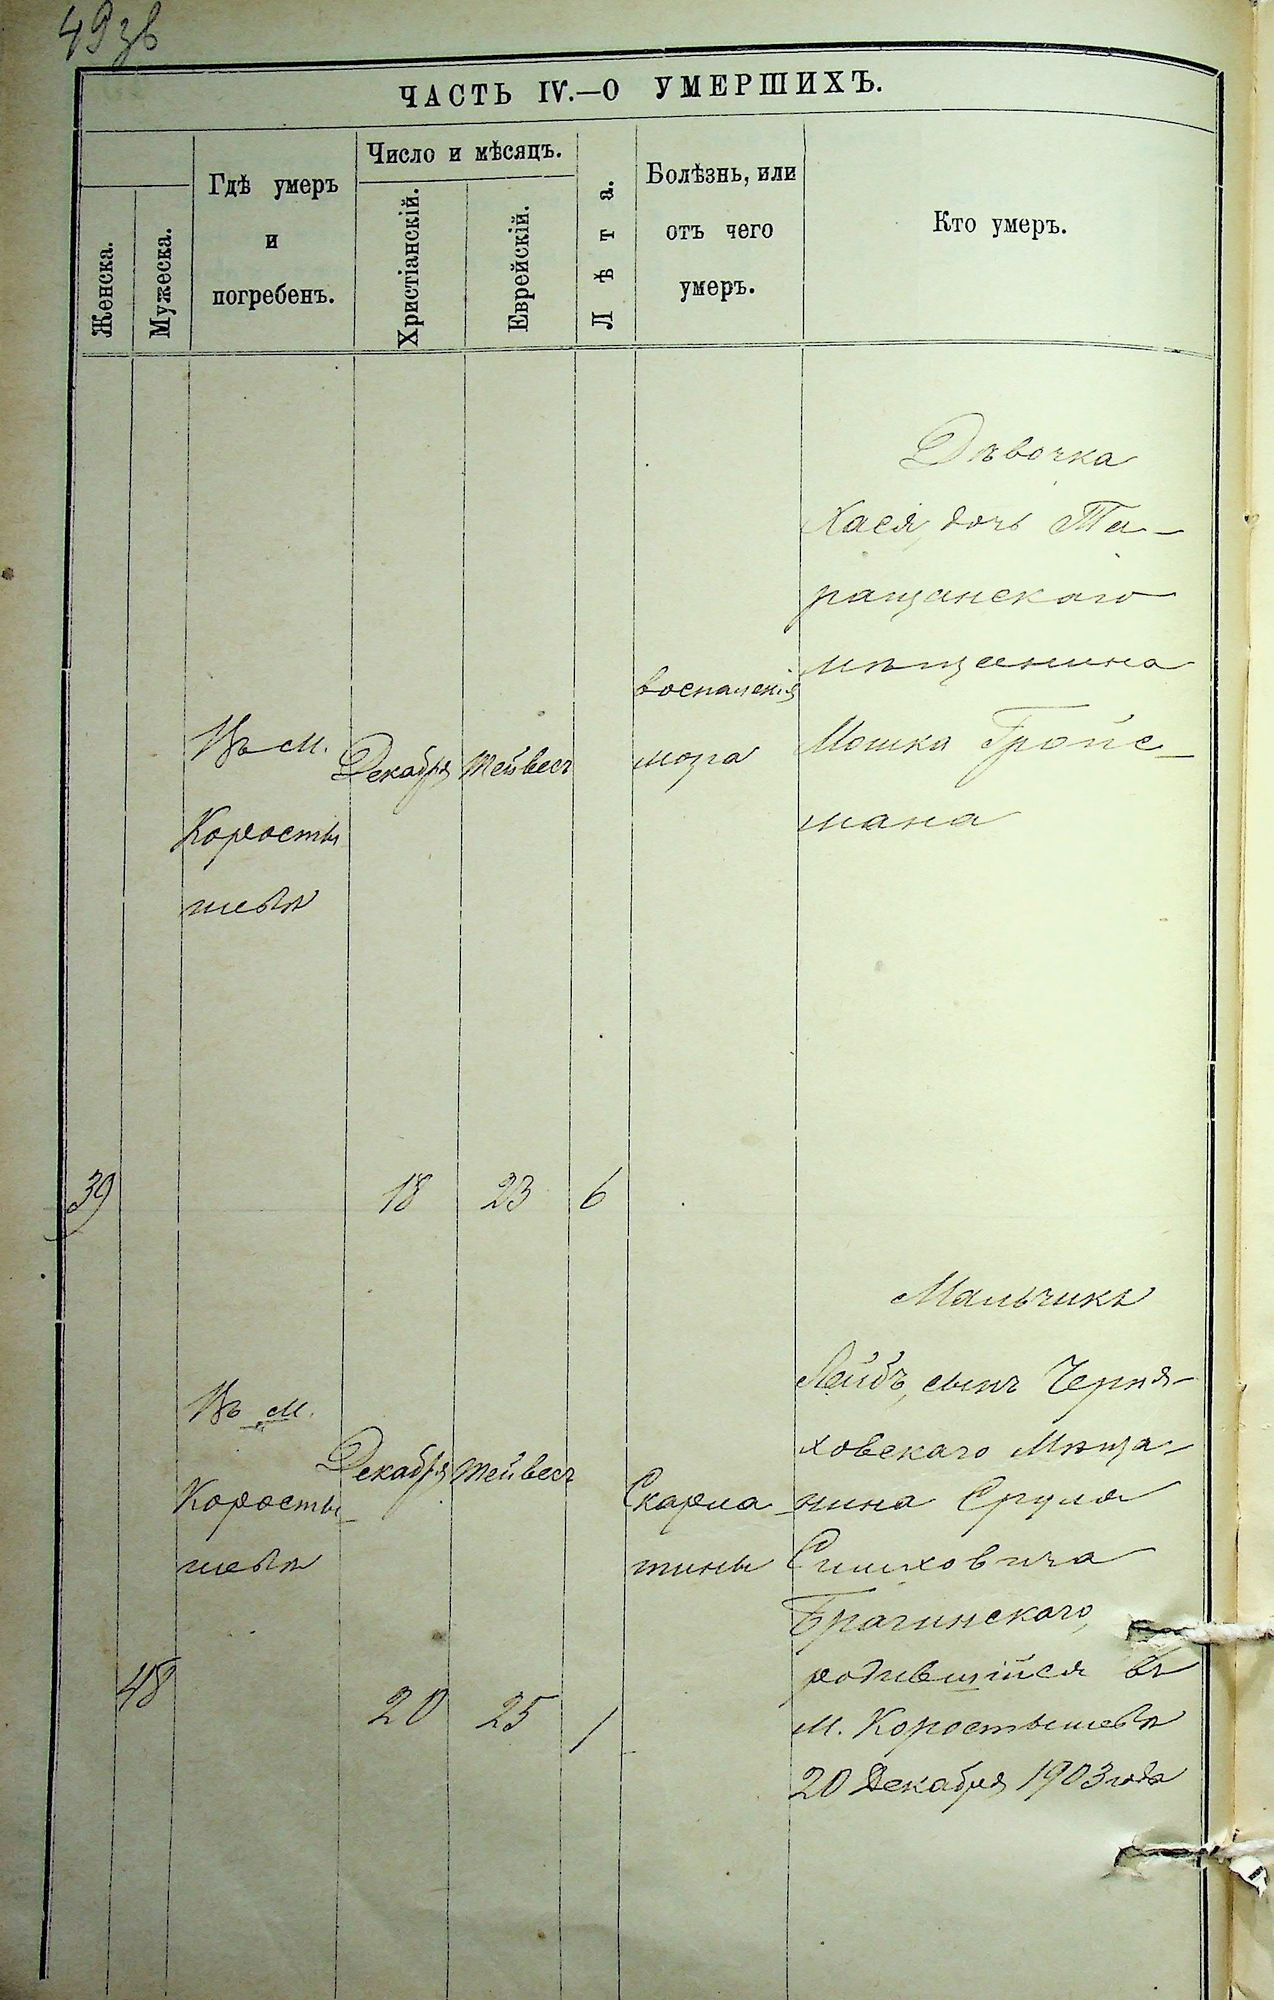 49зв
ЧАСТЬ IV.—О УМЕРШИХЪ.
Женска.
Мужеска.
Гдѣ умеръ
и
погребенъ.
Число и мѣсяцъ.
Христіанскій.
Еврейскій.
Лѣта.
Болѣзнь, или
отъ чего
умеръ.
Кто умеръ.
39
Въ м.
Коросты
шевѣ
Декабря
18
Тейвесъ
23
6
воспаленія
мозга
Дѣвочка
Хася, дочь Та-
ращанскаго
мѣщанина
Мошка Гройс-
мана
48
Въ м.
Коросты-
шевѣ
Декабря
20
Тейвесъ
25
1
Скарла-
тины
Мальчикъ
Лейбъ, сынъ Черня-
ховскаго Мѣща-
нина Сруля
Симховича
Брагинскаго,
родившійся въ
м. Коростышевѣ
20 Декабря 1903 года